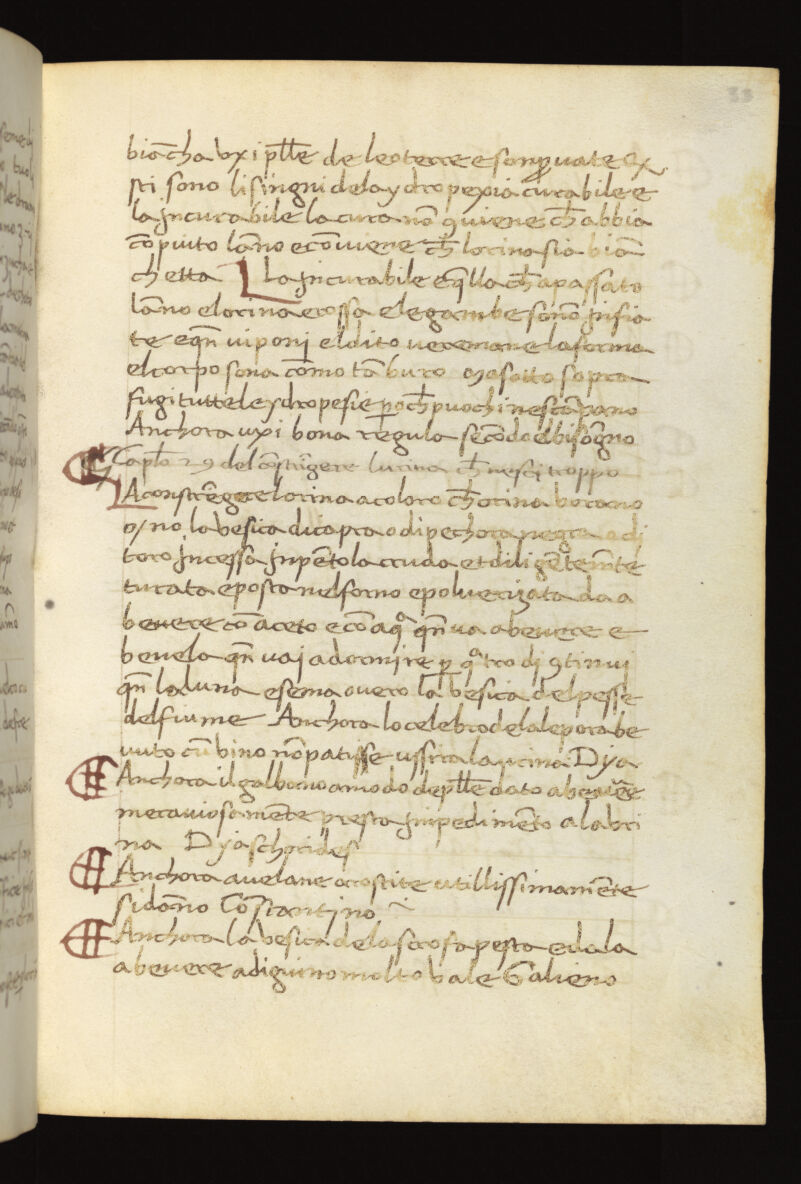 33
biācha vxi płłe de le oterre e son ꝓuate Q̃
sti sono li singni dela ydropexia curabile e
la jncurabile la cura nō 9uiene ch̄ abbia
cōpiuto lāno e cōuiene ch̄ lorina sia biā
chetta La jncurabile e q̄lla ch̄ a passato
lāno e lorina e rossa e le gambe sonō jnfia
te e qn̄ vi ponj el dito ve remane la forma
el corpo sona cōmo tāburo sotto sopra
fugi tutte le ydropesie ꝑoch̄ puochi ne scāpano
Anchora vxi bona regula secōdo el bisōgno
Capłō 29 del cōstrīgere lurina ch̄ nesci troppo
A constrēgere lorina a coloro ch̄ orina
o no la vesica di capra o di pechora negra o di
toro jncessa jn pentola cruda et diligētemēte
turata e posta nel forno e poluerizata da a
beuere cō aceto e cō aqª qn̄ va a beuere e
beuela qn̄ vaj a dormire ꝑ qªtro dj 9tinuj
qn̄ la luna e sema ouero la vesica del pesse
del fiume Anchora lo celebro dela lepora be
uuto cū vino nō patisse vssire la urina Dya
Anchora il galbano a modo de płłe dato a beuēre
merauiosamēte presta jmpedimēto a la vri
na Dyaschorides
Anchora auelane arostite vtillissimamēte
si dāno Constantino
Anchora la vesica dela scrofa pesta e data
a beuere a digiuno molto vale Galieno